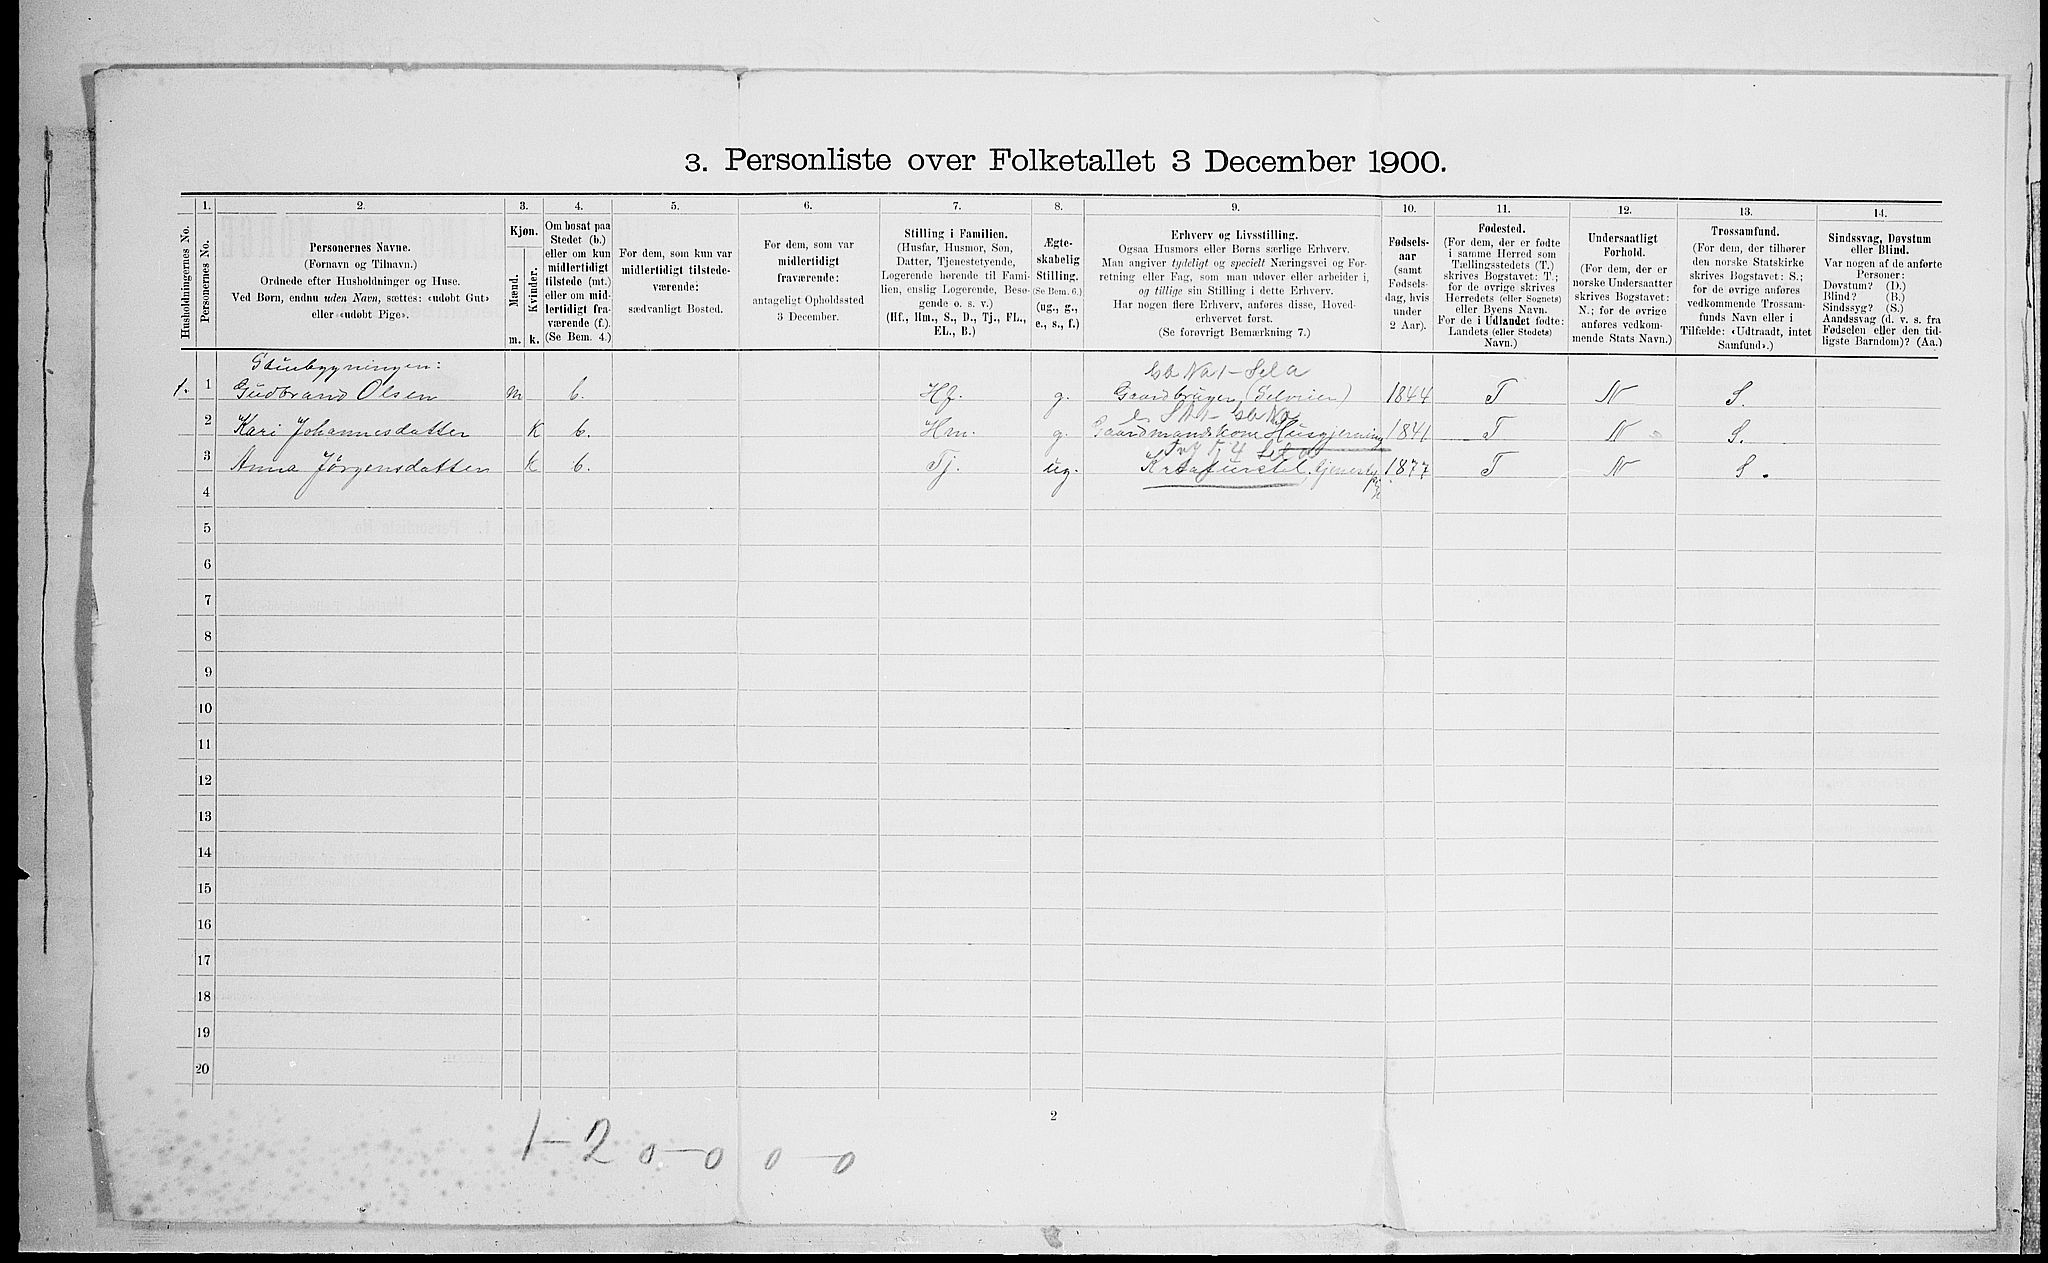 3. Personliste over Folketallet 3 December 1900.
Husholdningernes No.
1.
Personernes No.
2.
Personernes Navne.
(Fornavn og Tilnavn.)
Ordnede efter Husholdninger og Huse.
Ved Børn, endnu uden Navn, sættes: «udøbt Gut»
eller «udøbt Pige».
3.
Kjøn.
Mænd.
Kvinder.
m. k.
4.
Om bosat paa
Stedet (b.)
eller om kun
midlertidigt
tilstede (mt.)
eller om mid-
lertidigt fra-
værende (f.).
(Se Bem. 4.)
5.
For dem, som kun var
midlertidigt tilstede-
værende:
sædvanligt Bosted.
6.
For dem, som var
midlertidigt
fraværende:
antageligt Opholdssted
3 December.
7.
Stilling i Familien.
(Husfar, Husmor, Søn,
Datter, Tjenestetyende,
Logerende hørende til Fami-
lien, enslig Logerende, Besø-
gende o. s. v.)
(Hf., Hm., S., D., Tj., FL.,
EL., B.)
8.
Ægte-
skabelig
Stilling.
(Se Bem. 6.)
(ug., g.,
e., s., f.)
9.
Erhverv og Livsstilling.
Ogsaa Husmors eller Børns særlige Erhverv.
Man angiver tydeligt og specielt Næringsvei og For-
retning eller Fag, som man udøver eller arbeider i,
og tillige sin Stilling i dette Erhverv.
Har nogen flere Erhverv, anføres disse, Hoved-
erhvervet først.
(Se forøvrigt Bemærkning 7.)
10.
Fødsels-
aar
(samt
Fødsels-
dag, hvis
under
2 Aar).
11.
Fødested.
(For dem, der er fødte
i samme Herred som
Tællingsstedets (T.)
skrives Bogstavet: T.;
for de øvrige skrives
Herredets (eller Sognets)
eller Byens Navn.
For de i Udlandet fødte:
Landets (eller Stedets)
Navn.)
12.
Undersaatligt
Forhold.
(For dem, der er
norske Undersaatter
skrives Bogstavet:
N.; for de øvrige
anføres vedkom-
mende Stats Navn.)
13.
Trossamfund.
(For dem, der tilhører
den norske Statskirke
skrives Bogstavet: S.;
for de øvrige anføres
vedkommende Trossam-
funds Navn eller i
Tilfælde: «Udtraadt, intet
Samfund».)
14.
Sindssvag, Døvstum
eller Blind.
Var nogen af de anførte
Personer:
Døvstum? (D.)
Blind? (B.)
Sindssyg? (S.)
Aandssvag (d. v. s. fra
Fødselen eller den tid-
ligste Barndom)? (Aa.)
Stuebygningen:
1. 1 Gudbrand Olsen m b. Hf. g. Gaardbruger (Selveier) 1844 T N S.
2 Kari Johannesdatter K b. Hm. g. Gaardmandskone Husgjerning 1841 T N S.
3 Anna Jørgensdatter K b. Tj. ug. Kreaturstel, 1877 T N S.
4
5
6
7
8
9
10
11
12
13
14
15
16
17
18
19
20
2
1-2 0-0 0-0